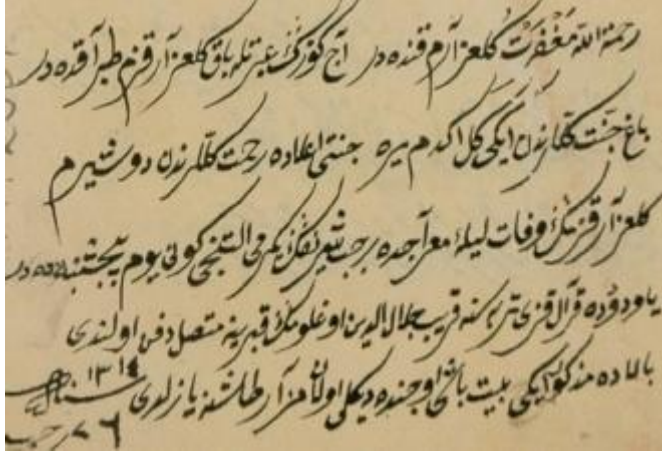 رحمة الله مغفرت كلعزارم قنده در آج كوزك عبرتله باق كلعزار قزم طبراقده در
باغ جنت كللرندن ايكى كل اكدم يره جنت اعلاده رحمت كللرندن دوشيرم
كلعزار قزمك وفات ليلۀ معراجده رجب شريفك يكرمى التنجى كونى يوم پنجشنبه ده در
ياودوده قرال قزى تربه سنه قريب جلال الدين اوغلومك قبرينه متصل دفن اولندى
بالاده مذكور ايكى بيت باش اوجنده ديكلى اولان مزار طاشنه يازلدى سنه ١٣١٤
٢٦ رجب